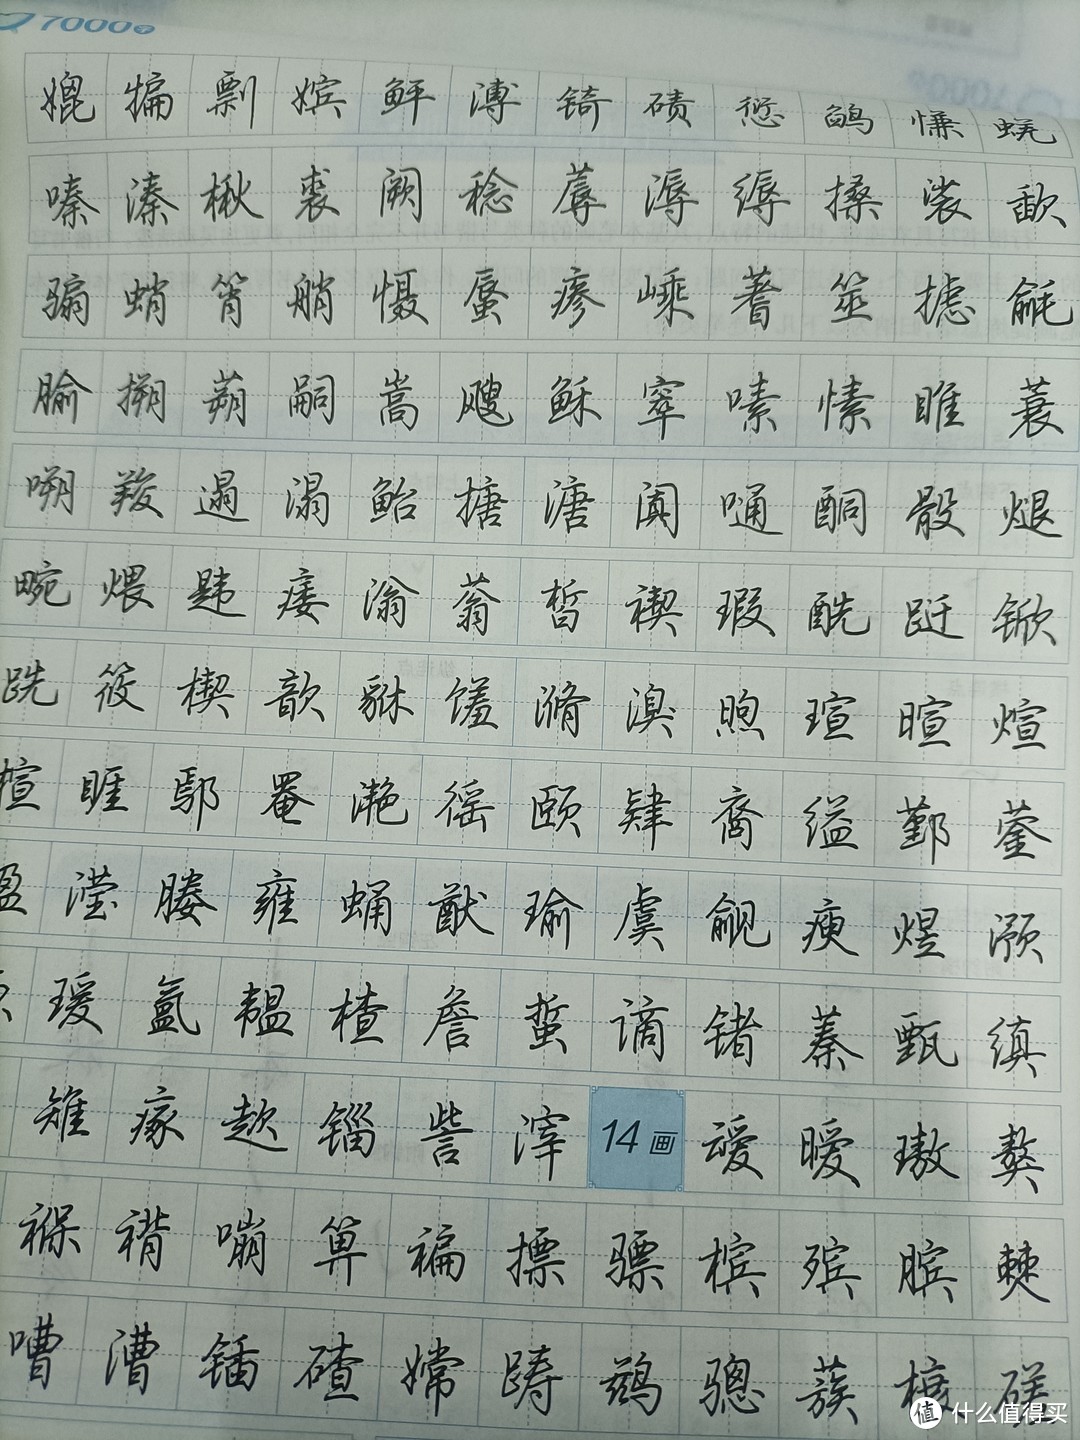 7000字
媲犏剽嫔鲆溥锜碛愆鹐慊蜣
嗪溱楸裘阙稔蓐溽缛搡裟歃
骟蛸筲艄慑蜃瘆嵊蓍筮摅毹
腧搠蒴嗣嵩飕稣窣嗉愫睢蓑
嗍羧遢溻鲐搪溏阗嗵酮骰煺
畹煨韪痿滃蓊皙禊瑕酰跹锨
跣筱楔歆貅馐滫溴煦瑄暄煊
楦睚鄢罨滟徭颐肄裔缢鄞蓥
滢媵雍蛹猷瑜虞觎瘐煜滪
瑗氲韫楂詹蜇谪锗蓁甄缜
雉瘃趑锱訾滓 14画 叆暧璈獒
褓褙嘣箅褊摽骠槟殡膑僰
嘈漕锸碴嫦踌鹚骢蔟榱磋
值 什么值得买